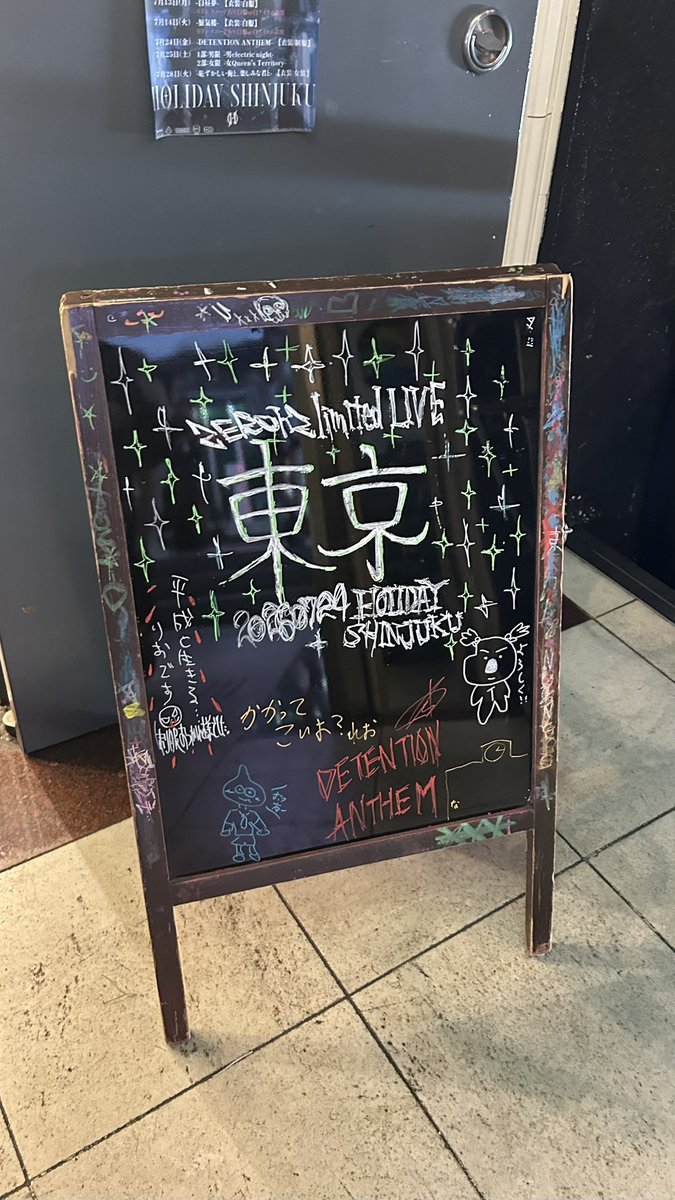 7月13日(月) -白昼夢- 【衣装:白服】
7月14日(火) -蜃気楼- 【衣装:白服】
7月24日(金) -DETENTION ANTHEM- 【衣装:制服】
7月25日(土) 1部:男限 -男electric night-
2部:女限 -女Queen's Territory-
7月28日(火) -恥ずかしい俺と、楽しみな君と- 【衣装:女装】
HOLIDAY SHINJUKU
limited LIVE
東京
20260724 HOLIDAY
SHINJUKU
平成を生きる
りおです
かかって
こいよ?れお
DETENTION
ANTHEM
な